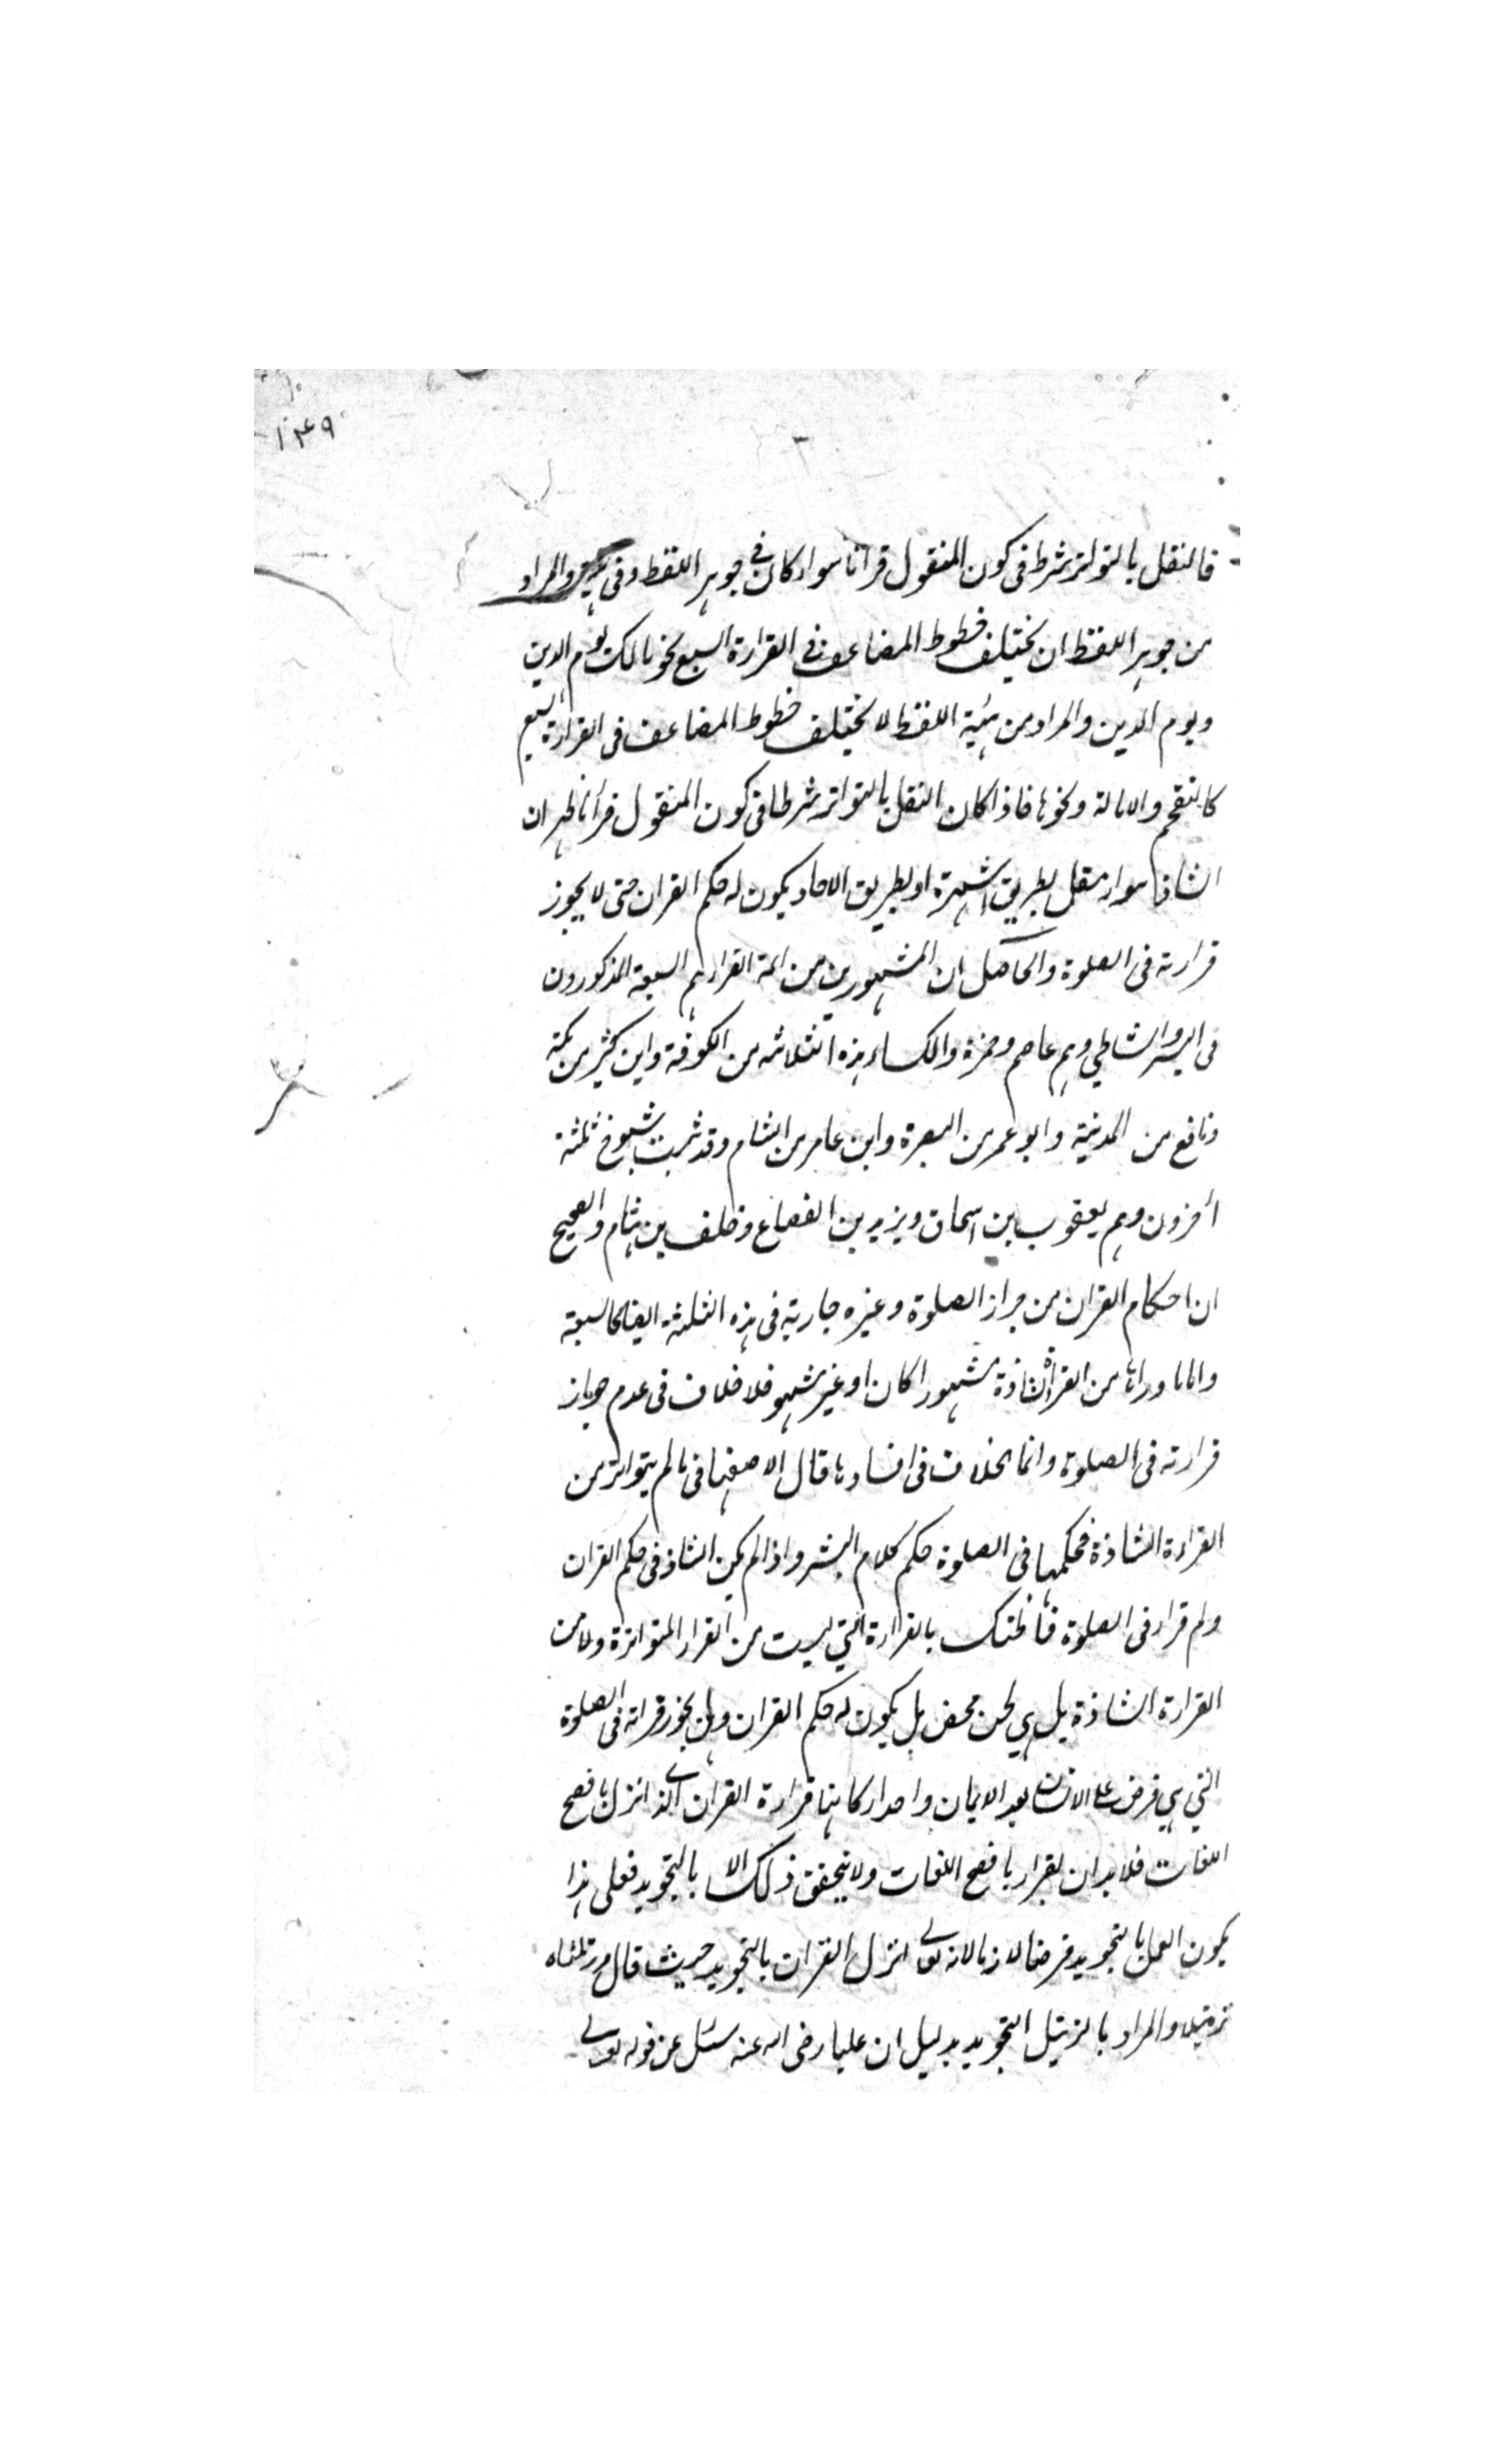 ١٤٩
فالنقل بالتواتر شرط فى كون المنقول قرآنا سواء كان فى جوهر اللفظ وفى هيئة والمراد
من جوهر اللفظ ان يختلف خطوط المضاعف فى القراءة السبع نحو مالك يوم الدين
ويوم الدين والمراد من هيئة اللفظ لا يختلف خطوط المضاعف فى القراءة السبع
كالتفخم والامالة ونحوها فاذا كان النقل بالتواتر شرطا فى كون المنقول قرأنا ظهر ان
الشاذ سواء نقل بطريق الشهرة او بطريق الاحاد يكون له حكم القران حتى لا يجوز
قراءته فى الصلوة والحاصل ان المشهورين من ائمة القراء هم السبعة المذكورون
فى اليسر والشاطبي وهم عاصم وحمزة والكساء هذه الثلاثه من الكوفة وابن كثير من مكة
ونافع من المدينة وابو عمر من البصرة وابن عامر من الشام وقد ثبت شيوخ ثلثة
أخرون وهم يعقوب بن اسحاق ويزيد بن القعقاع وخلف بن هشام والصحيح
ان احكام القران من جواز الصلوة وغيره جارية فى هذه الثلثة ايضا كالسبعة
واما ما وراءها من القراء الشاذة مشهورا كان او غير مشهور فلا خلاف فى عدم جواز
قراءته فى الصلوة وانما الخلاف فى افسادها قال الاصفهانى ما لم يتواتر من
القراءة الشاذة فحكمها فى الصلوة حكم كلام البشر واذا لم يكن الشاذ فى حكم القران
ولم قراء فى الصلوة فما ظنك بالقراءة التي ليست من القراء المتواترة ولا من
القراءة الشاذة بل هي لحن محض بل يكون له حكم القران وهل يجوز قراته فى الصلوة
التي هي فرض على الانسان بعد الايمان واحد اركانها قراءة القران الذى انزل بافصح
اللغات فلا بد ان يقراء بافصح اللغات ولا يتحقق ذلك الا بالتجويد فعلى هذا
يكون العمل بالتجويد فرضا لازما لانه تعالى انزل القران بالتجويد حيث قال ورتلناه
ترتيلا والمراد بالترتيل التجويد بدليل ان عليا رضى الله عنه سئل عن قوله تعالى